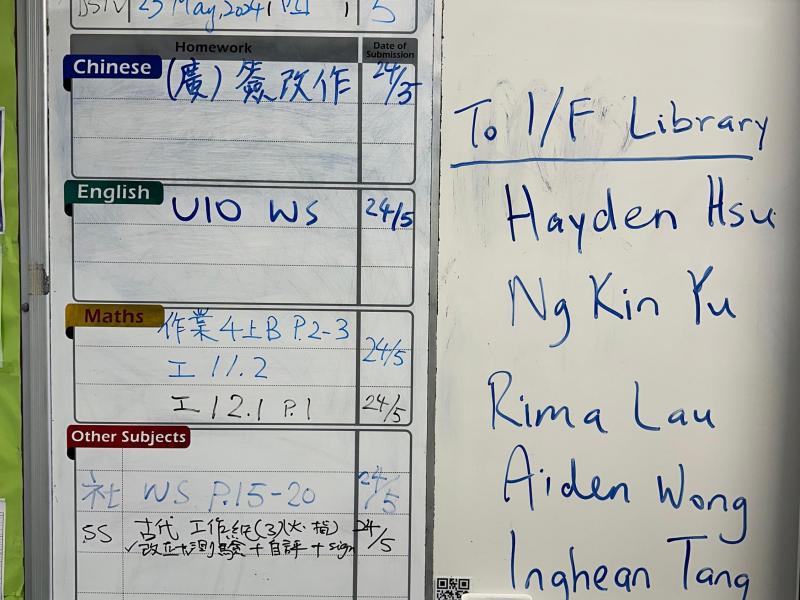 23 May, 2024
5
Homework
Date of Submission
Chinese
(廣) 簽改作
24/5
English
U10 WS
24/5
Maths
作業4上B P.2-3
工 11.2
24/5
工 12.1 P.1
24/5
Other Subjects
社 WS P.15-20
24/5
SS 古代 工作紙(3)(火·指)
24/5
✓改正+測驗+自評+sign
To 1/F Library
Hayden Hsu
Ng Kin Yu
Rima Lau
Aiden Wong
Inghean Tang